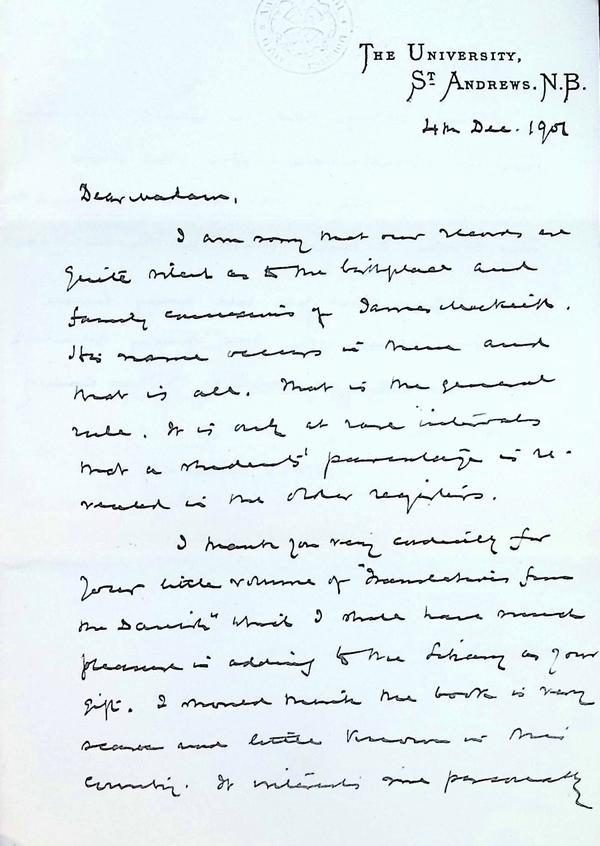 THE UNIVERSITY,
ST ANDREWS. N.B.
4th Dec. 1901
Dear Madam,
I am sorry that our records are
quite silent as to the birthplace and
family connexions of James Mackeith.
His name occurs in them and
that is all. That is the general
rule. It is only at rare intervals
that a students' parentage is re-
vealed in the older registers.
I thank you very cordially for
your little volume of "Translations from
the Danish" which I shall have much
pleasure in adding to the Library as your
gift. I should think the book is very
scarce and little known in this
country. It interests me personally